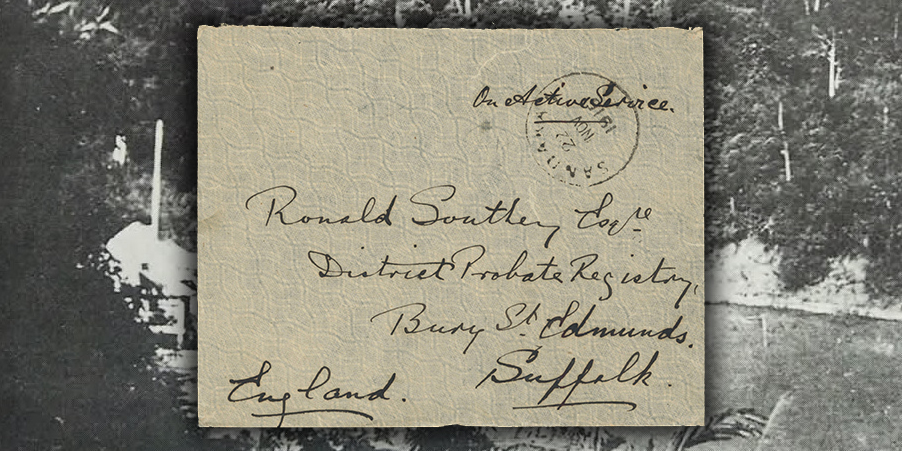 On Active Service.
SANDAKAN
22
NOV
Ronald Southey Esqre
District Probate Registry,
Bury St Edmunds.
Suffolk.
England.